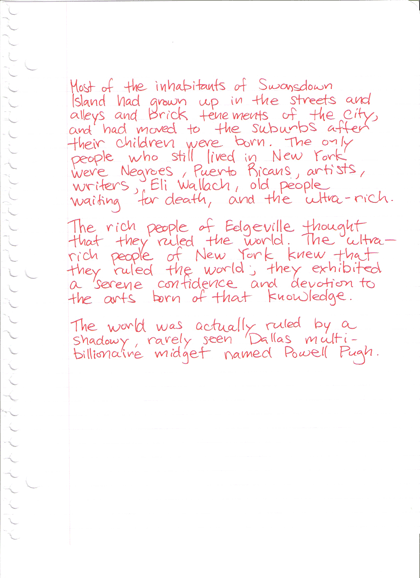 Most of the inhabitants of Swansdown
Island had grown up in the streets and
alleys and brick tenements of the city,
and had moved to the suburbs after
their children were born. The only
people who still lived in New York
were Negroes, Puerto Ricans, artists,
writers, Eli Wallach, old people
waiting for death, and the ultra-rich.
The rich people of Edgeville thought
that they ruled the world. The ultra-
rich people of New York knew that
they ruled the world; they exhibited
a serene confidence and devotion to
the arts born of that knowledge.
The world was actually ruled by a
shadowy, rarely seen Dallas multi-
billionaire midget named Powell Pugh.